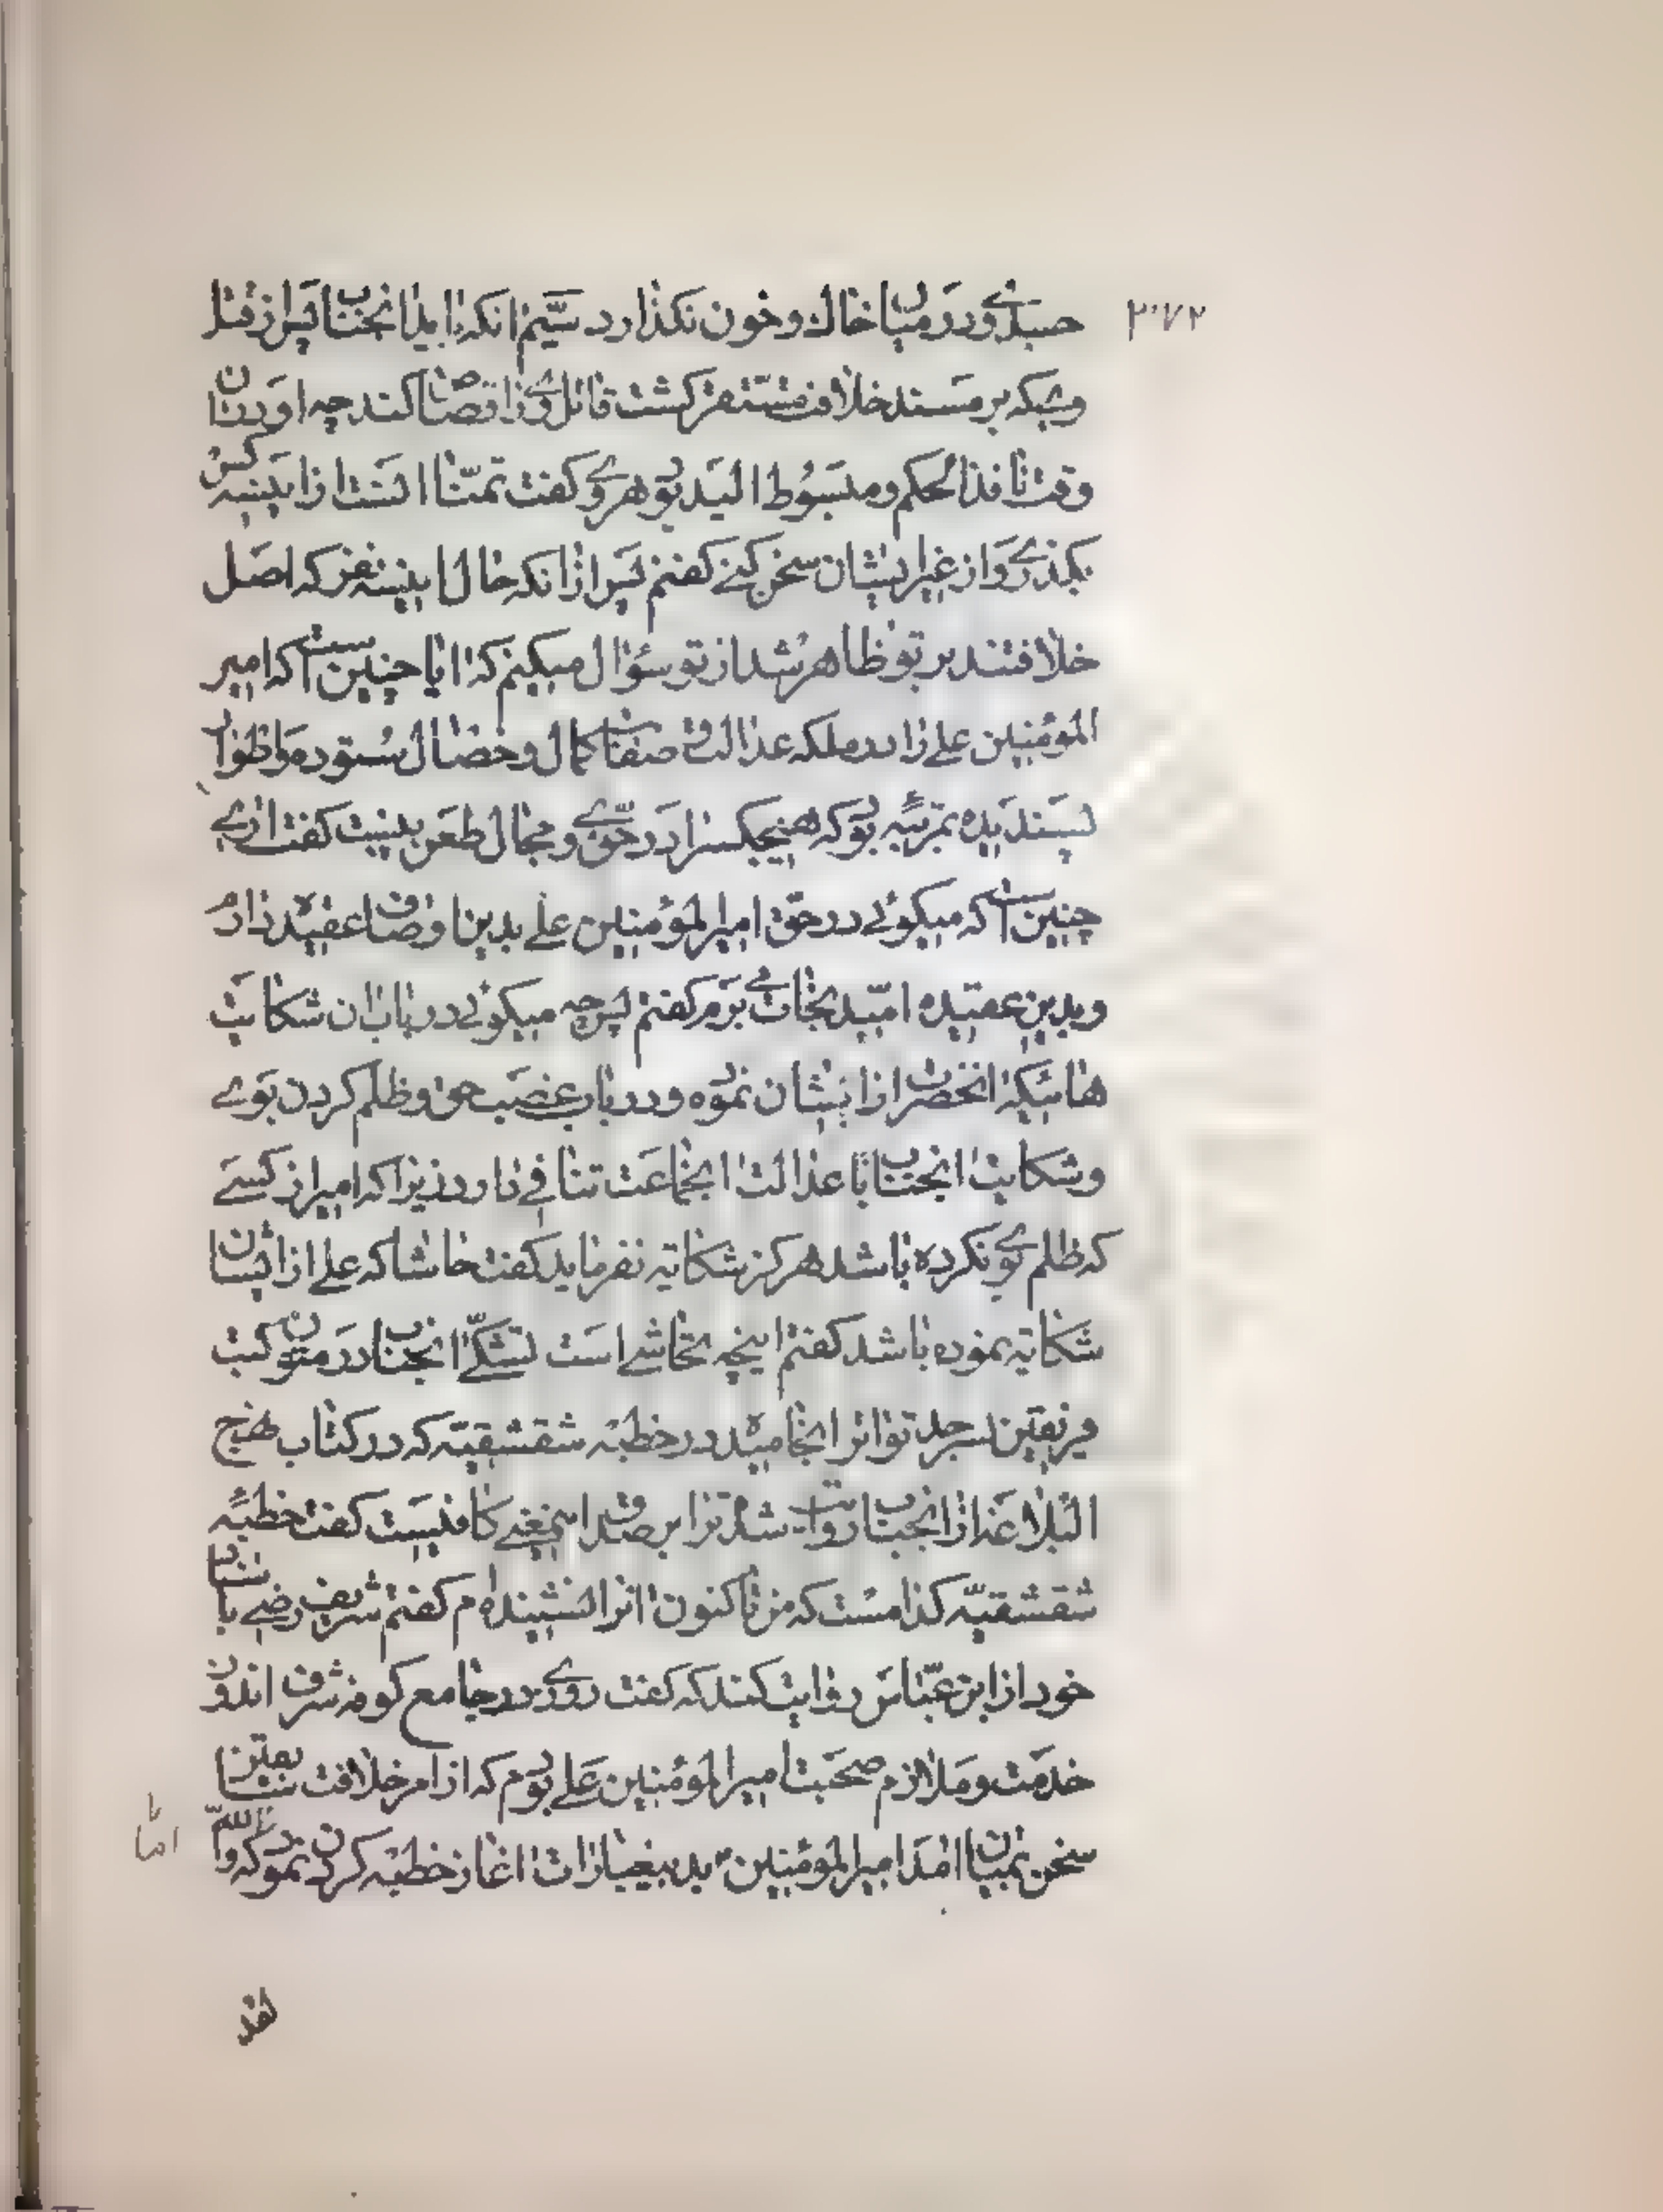 ۲۰۷۲
حسبدی و در میان خاک و خون نکذارد سیّم انکه ابدا انجناب پس از قتل
ویکه بر مسند خلافت مستقر کشت قاتل وی را قصاص کند چه او در ان
وقت نافذ الحکم و مبسوط الید بود هروی کفت تمنّا انست از اینسه کس
بکذری و از غیر ایشان سخن کنی کفتم پس از انکه حال اینسه نفر که اصل
خلافتند بر تو ظاهر شد از تو سؤال میکنم که ایا چنین است که امیر
المؤمنین علی را در ملکه عدالت و صفات کمال و خصال ستوده و اطوار
پسندیده بمرتبهٔ بود که هیچکس را در حقّ وی مجال طعن بنیست کفت اری
چنین است که میکوئی در حق امیر المؤمنین علی بدین اوصاف عقیده دارم
و بدین عقیده امّید نجات می برم کفتم پس چه میکوئی در باب ان شکایت
هائیکه انحضرت از ایشان نموده و در باب غصب حق و ظلم کردن بوی
و شکایت انجناب با عدالت انجماعت تنافی دارد زیرا که امیر از کسی
که ظلم بوی نکرده باشد هرکز شکایه نفرماید کفت حاشا که علی از ایشان
شکایه نموده باشد کفتم اینچه تحاشی است تشکّی انجناب در متون کتب
فریقین بسر حد تواتر انجامیده در خطبه شقشقیّه که در کتاب نهج
البلاغه از انجناب روایت شده ترا بر صدق اینمعنی کافیست کفت خطبهٔ
شقشقیّه کدامست که من تاکنون انرا نشنیده ام کفتم شریف رضی باسناد
خود از ابن عبّاس روایت کند که کفت روزی در جامع کوفه شرف اندوز
خدمت و ملازم صحبت امیر المؤمنین علی بودم که از امر خلافت سابقین
سخن بمیان امد امیر المؤمنین ع بدینعبارات اغاز خطبه کردن نمود که و اللّه
اما
لقد